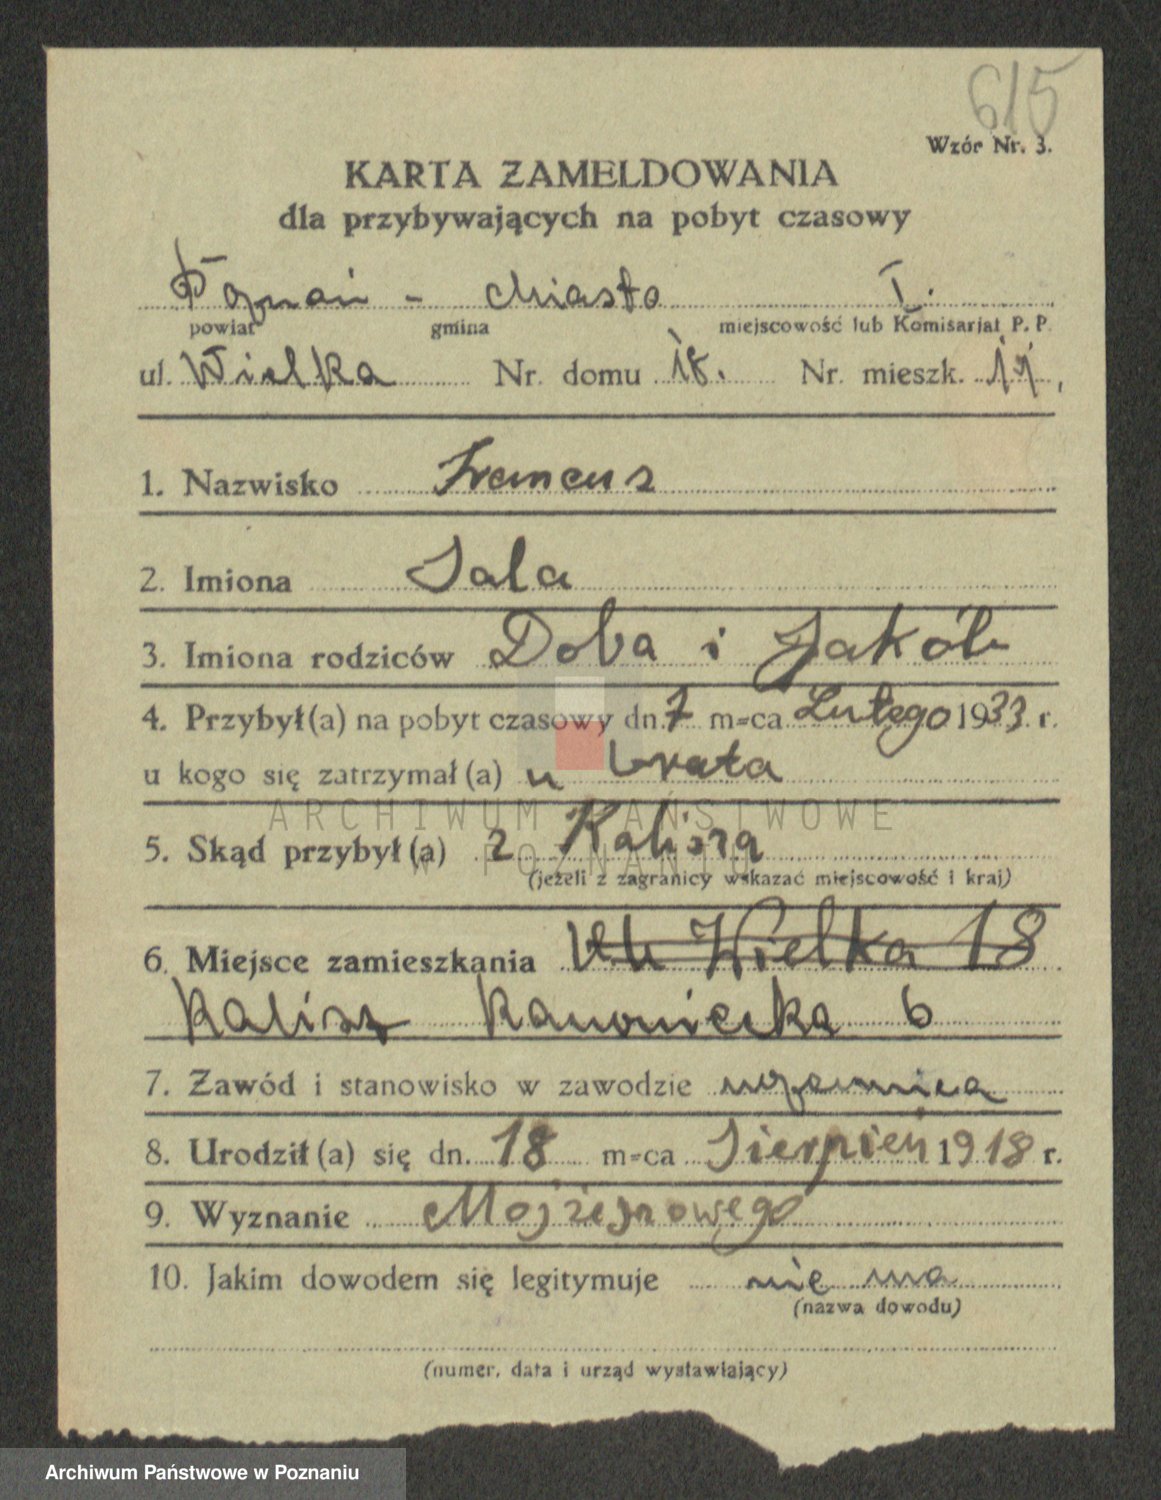 615
Wzór Nr. 3.
KARTA ZAMELDOWANIA
dla przybywających na pobyt czasowy
Poznań - Miasto I.
powiat gmina miejscowość lub Komisarjat P. P.
ul. Wielka Nr. domu 18. Nr. mieszk.
1. Nazwisko
2. Imiona Sala
3. Imiona rodziców Doba i Jakób
4. Przybył(a) na pobyt czasowy dn. 7 m-ca Lutego 1933 r.
u kogo się zatrzymał(a) u brata
5. Skąd przybył(a) z Kalisza
(jeżeli z zagranicy wskazać miejscowość i kraj)
6. Miejsce zamieszkania Wielka 18
Kalisz Kanonicka 6
7. Zawód i stanowisko w zawodzie uczennica
8. Urodził(a) się dn. 18 m-ca Sierpień 1918 r.
9. Wyznanie Mojżeszowego
10. Jakim dowodem się legitymuje nie ma
(nazwa dowodu)
(numer, data i urząd wystawiający)
ARCHIWUM PAŃSTWOWE
W POZNANIU
Archiwum Państwowe w Poznaniu